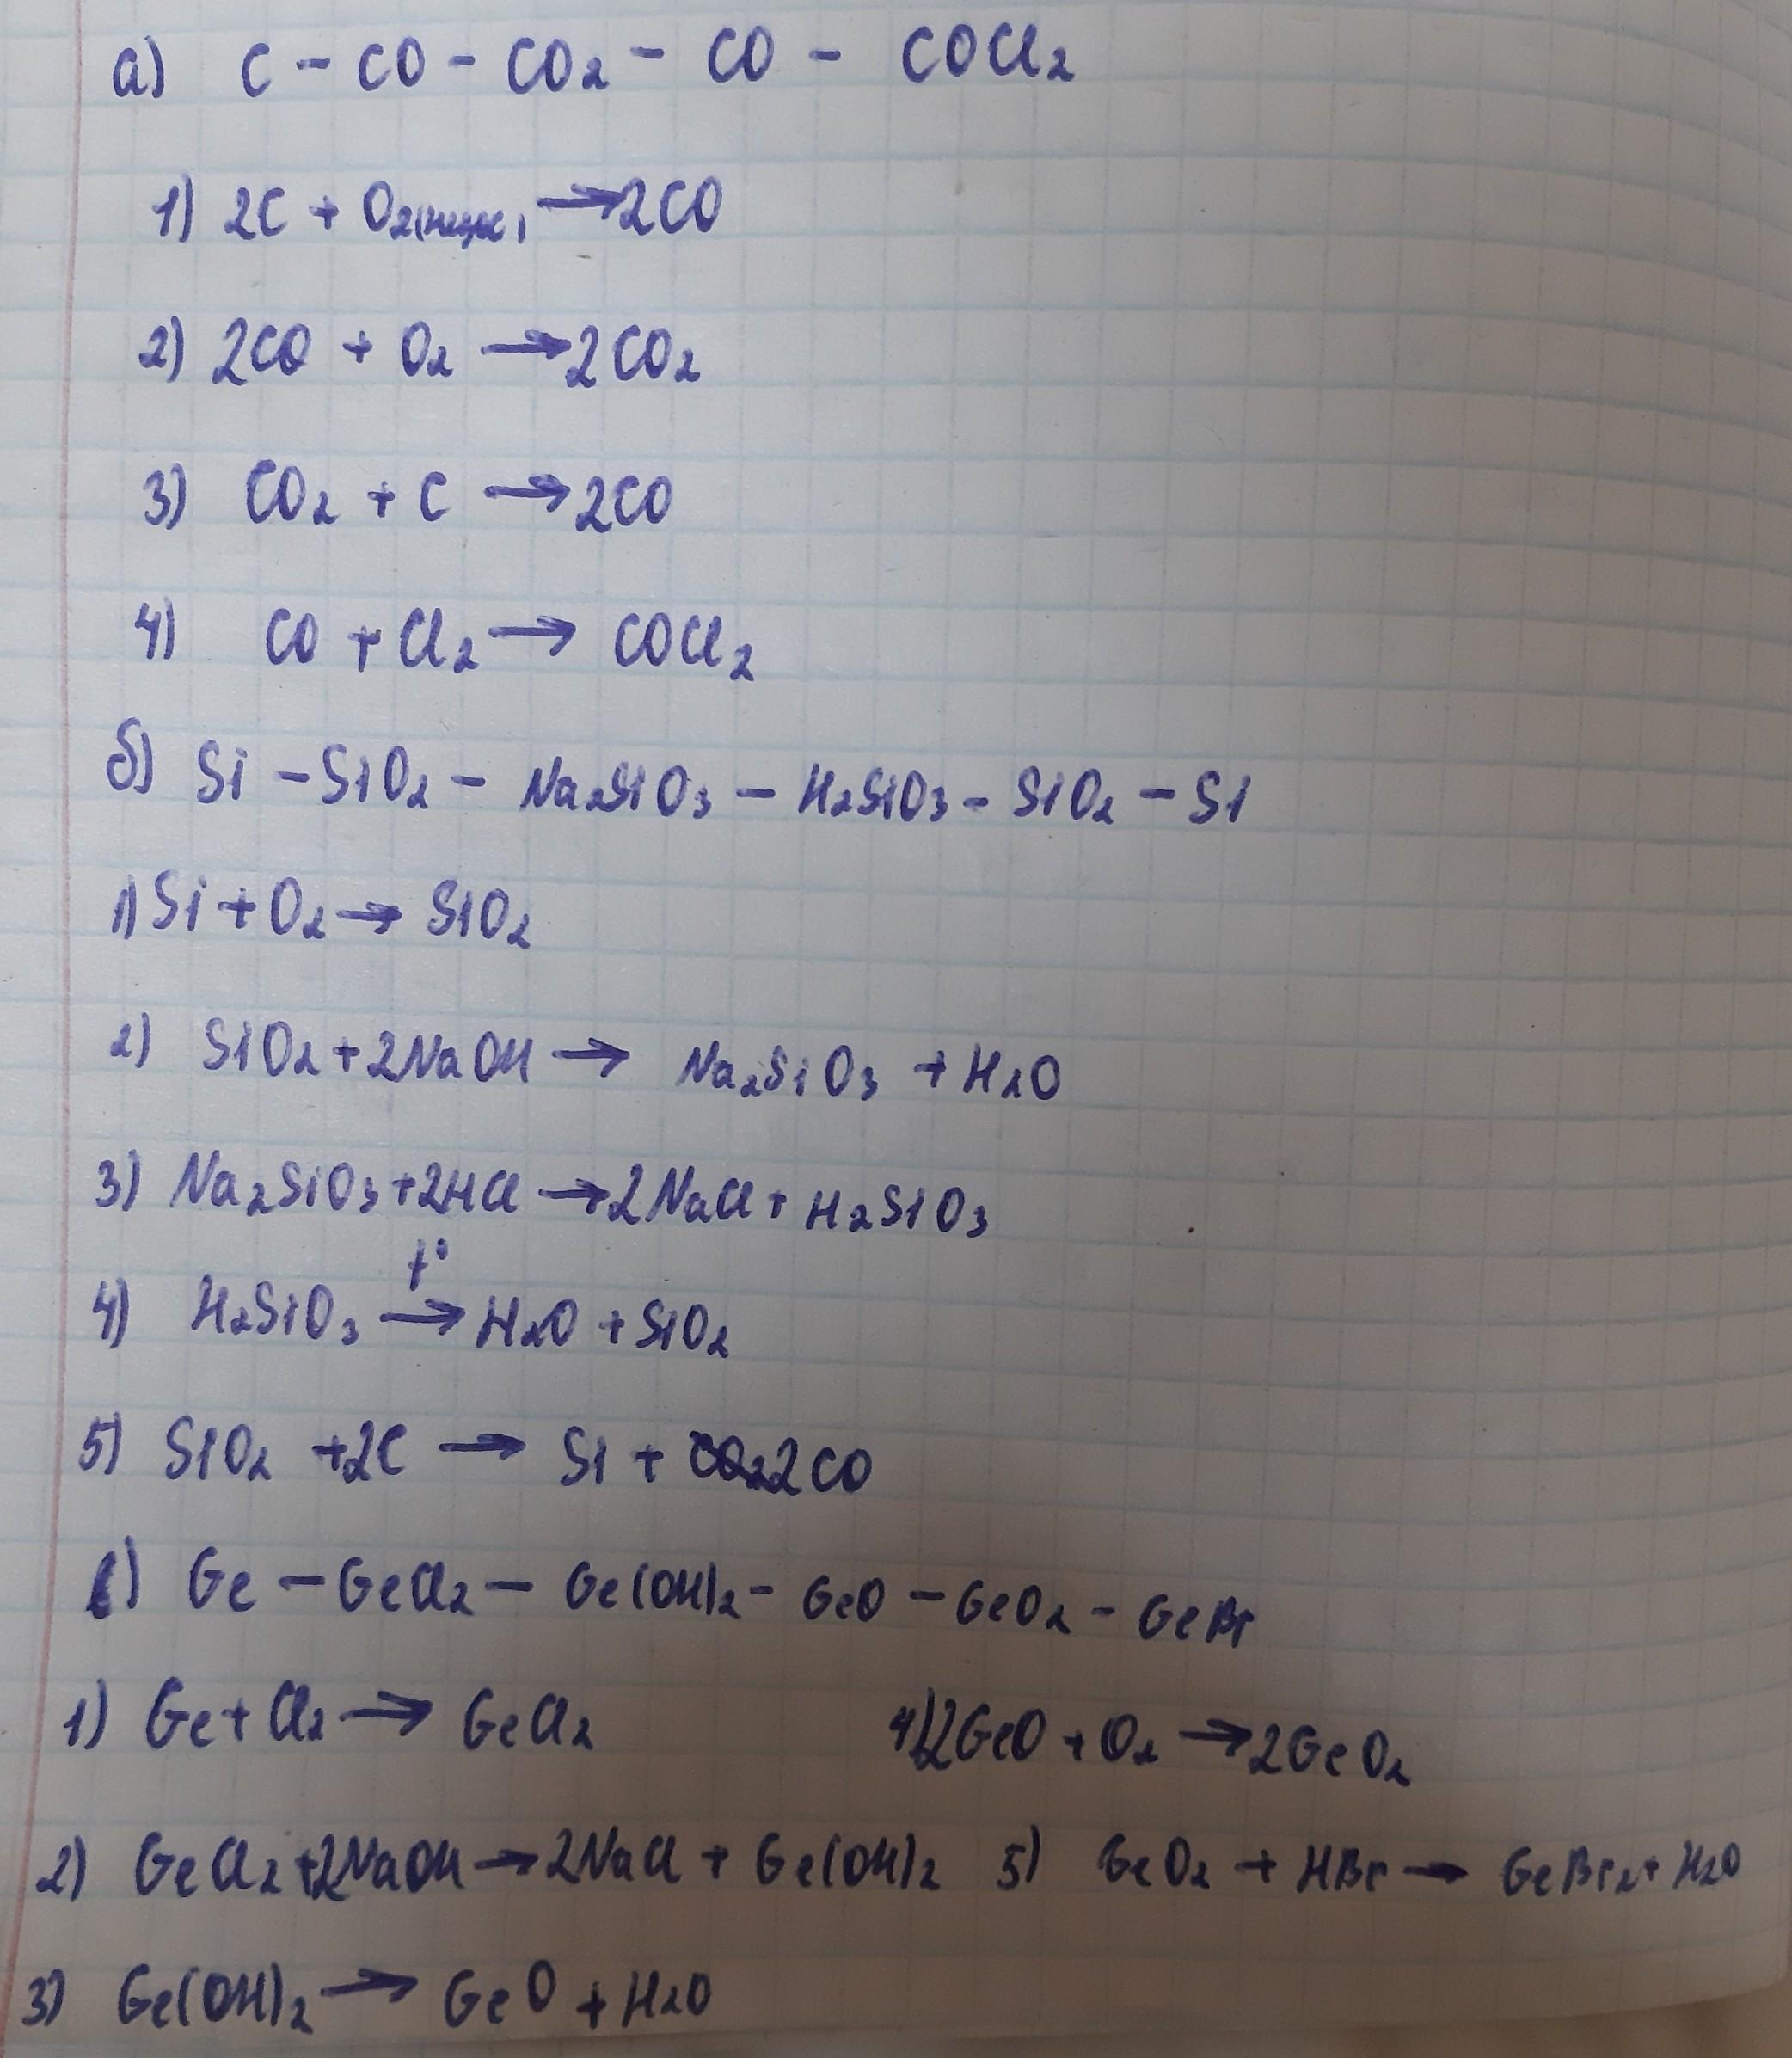 а) C - CO - CO2 - CO - COCl2
1) 2C + O2(недос.) → 2CO
2) 2CO + O2 → 2CO2
3) CO2 + C → 2CO
4) CO + Cl2 → COCl2
б) Si - SiO2 - Na2SiO3 - H2SiO3 - SiO2 - Si
1) Si + O2 → SiO2
2) SiO2 + 2NaOH → Na2SiO3 + H2O
3) Na2SiO3 + 2HCl → 2NaCl + H2SiO3
4) H2SiO3 t° → H2O + SiO2
5) SiO2 + 2C → Si + 2CO
в) Ge - GeCl2 - Ge(OH)2 - GeO - GeO2 - GeBr
1) Ge + Cl2 → GeCl2
4) 2GeO + O2 → 2GeO2
2) GeCl2 + 2NaOH → 2NaCl + Ge(OH)2
5) GeO2 + HBr → GeBr2 + H2O
3) Ge(OH)2 → GeO + H2O